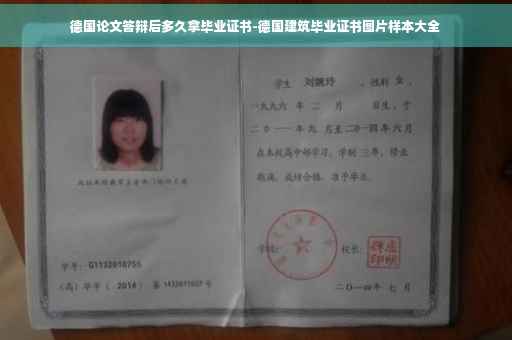 德国论文答辩后多久拿毕业证书-德国建筑毕业证书图片样本大全
学生 刘婉玲 ，性别 女 ，
一九九六 年 二 月 日生，于
二〇一一 年 九 月至 二〇一四 年 六 月
在本校高中部学习，学制 三 年，修业
期满，成绩合格，准予毕业。
学校： 校长：
学号： G1132010755
（高）毕字（ 2014 ）第 1432011007 号
二〇一四年 七 月